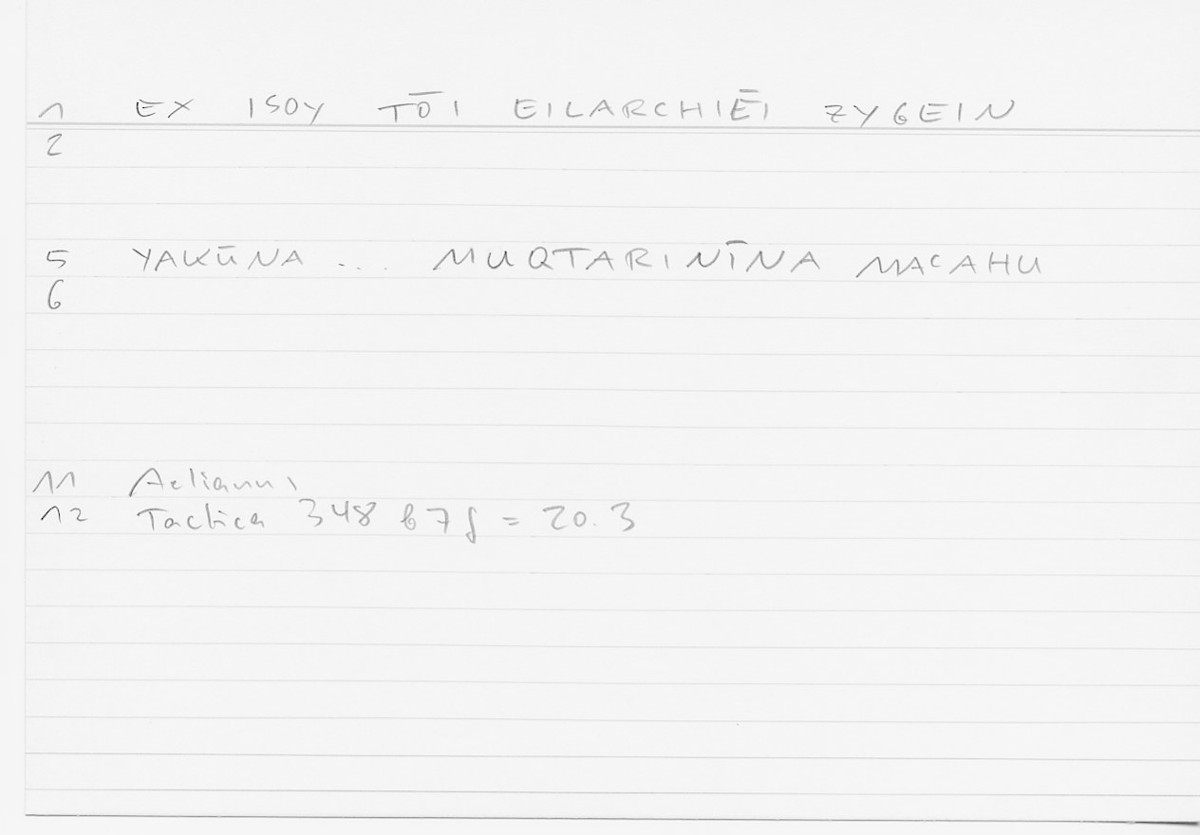 1 EX ISOY TŌI EILARCHIĒI ZYGEIN
2
5 YAKŪNA ... MUQTARINĪNA MAᶜAHU
6
11 Aelianus
12 Tactica 348 b 7 f = 20.3